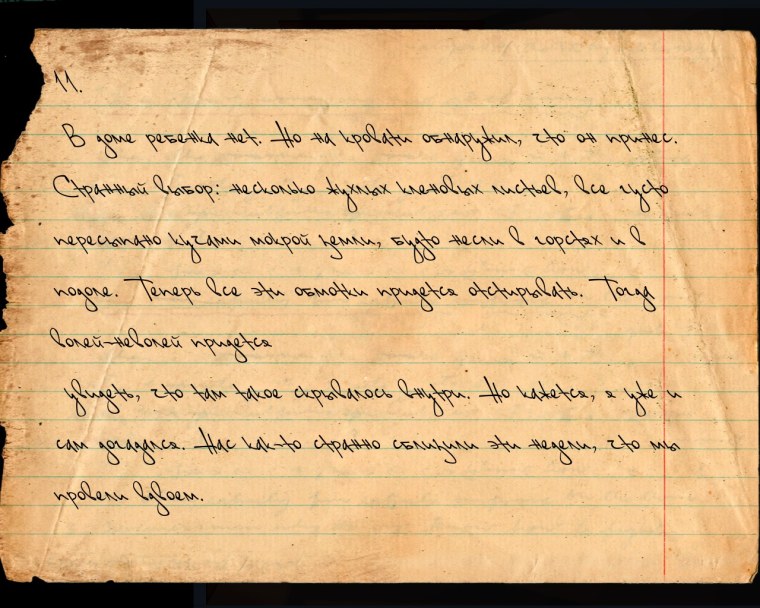 11.
В доме ребенка нет. Но на кровати обнаружил, что он принес.
Странный выбор: несколько жухлых кленовых листьев, все густо
пересыпано кучами мокрой земли, будто несли в горстях и в
подоле. Теперь все эти обмотки придется отстирывать. Тогда
волей-неволей придется
увидеть, что там такое скрывалось внутри. Но кажется, я уже и
сам догадался. Нас как-то странно сблизили эти недели, что мы
провели вдвоем.